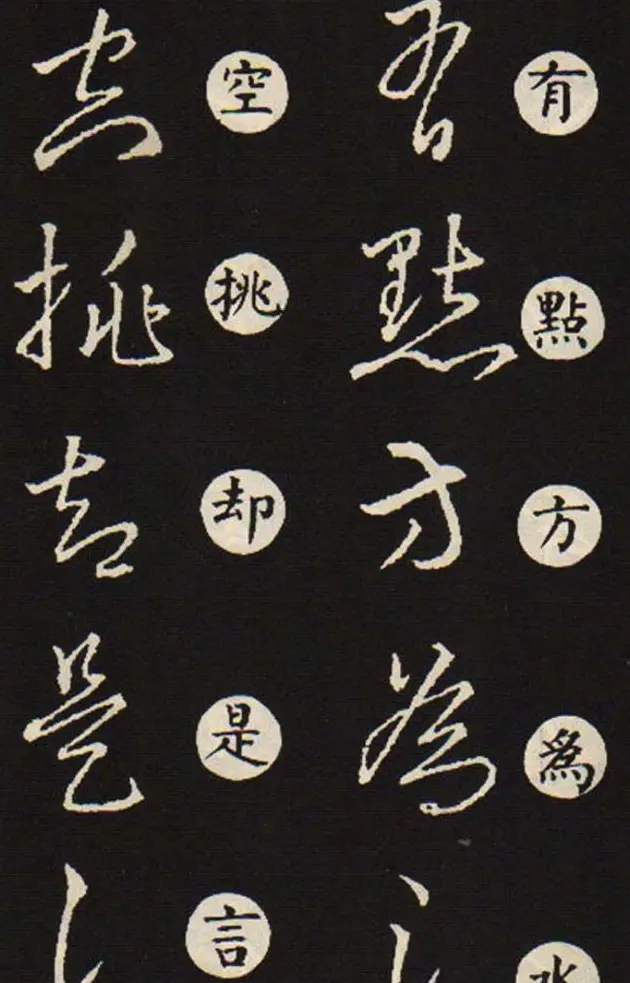 有點方爲水
空挑却是言